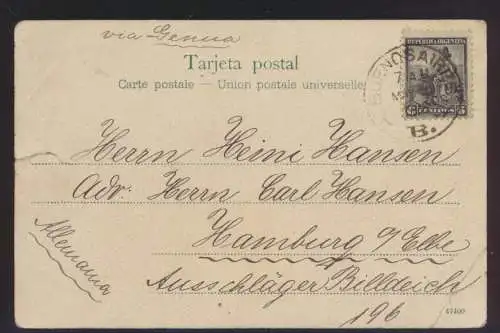 via Genua
REPUBLICA ARGENTINA
5 CENTAVOS 5
BUENOS AIRES
B.
Tarjeta postal
Carte postale — Union postale universelle
Herrn Heini Hansen
Adr: Herrn Carl Hansen
Hamburg a/Elbe
Ausschläger Billdeich
196
Allemania
47400